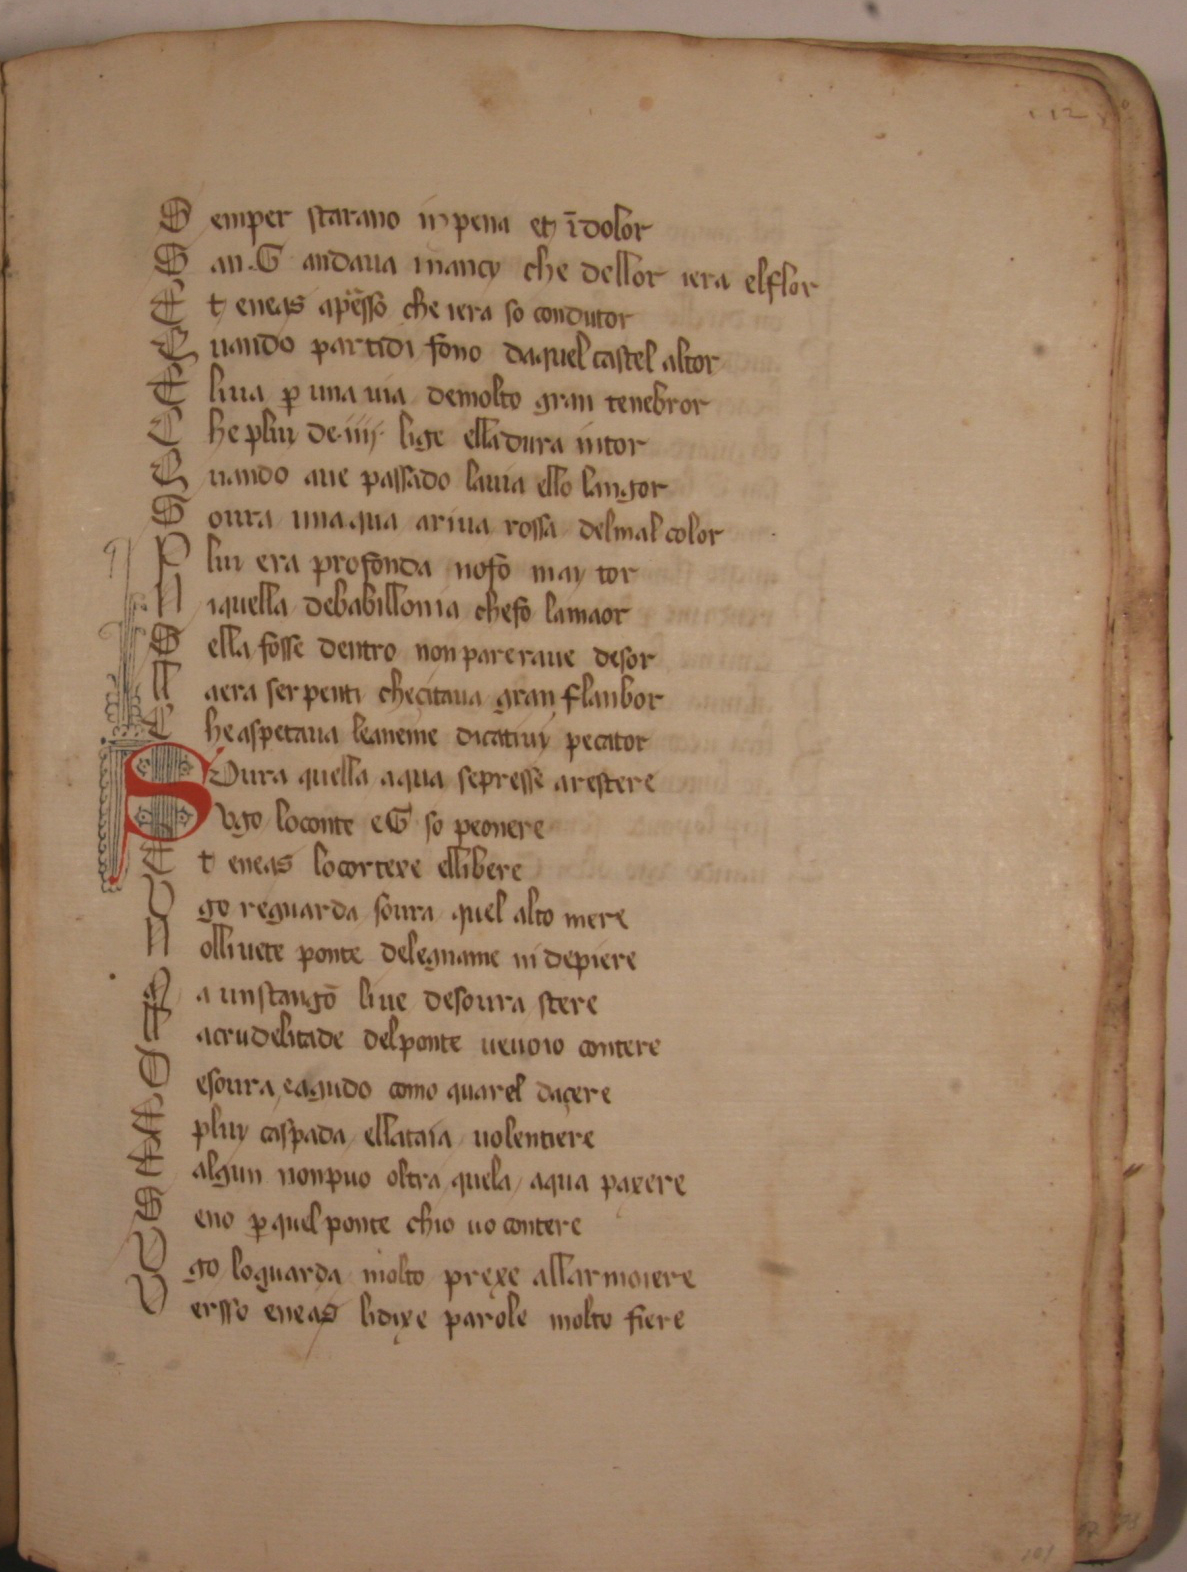 112
S emper starano in pena et ī dolor
S an .G. andaua inancy che dellor iera elflor
E t eneas apresso che iera so condutor
Q uando partidi fono daquel castel altor
E liua p una uia demolto gran tenebror
C he pluy de .iiij. lige elladura intor
Q uando aue passado lauia ello langor
S oura unaqua ariua rossa delmal color
P luy era profonda nofo may tor
N iquella debabillonia chefo lamaor
S ella fosse dentro non pareraue desor
ll aera serpenti cheçitaua gran flanbor
C he aspetaua leaneme dicatiuy pecator
S Oura quella aqua sepresse arestere
Vgo loconte e G so peonere
E t eneas locortexe ellibere
V go reguarda soura quel alto mere
N olliuete ponte delegname ni depiere
M a unstangō liue desoura stere
ll acrudelitade delponte ueuoio contere
D esoura eagudo como quarel daçere
E pluy caspada ellataia uolentiere
E algun nonpuo oltra quela aqua paxere
S eno p quel ponte chio uo contere
V go loguarda molto prexe allarmoiere
V ersso eneas lidixe parole molto fiere
101